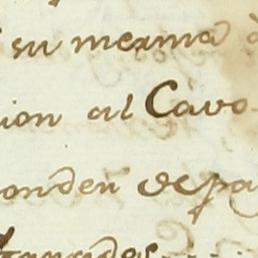 su mexma
ion al Cavo
onden de pa